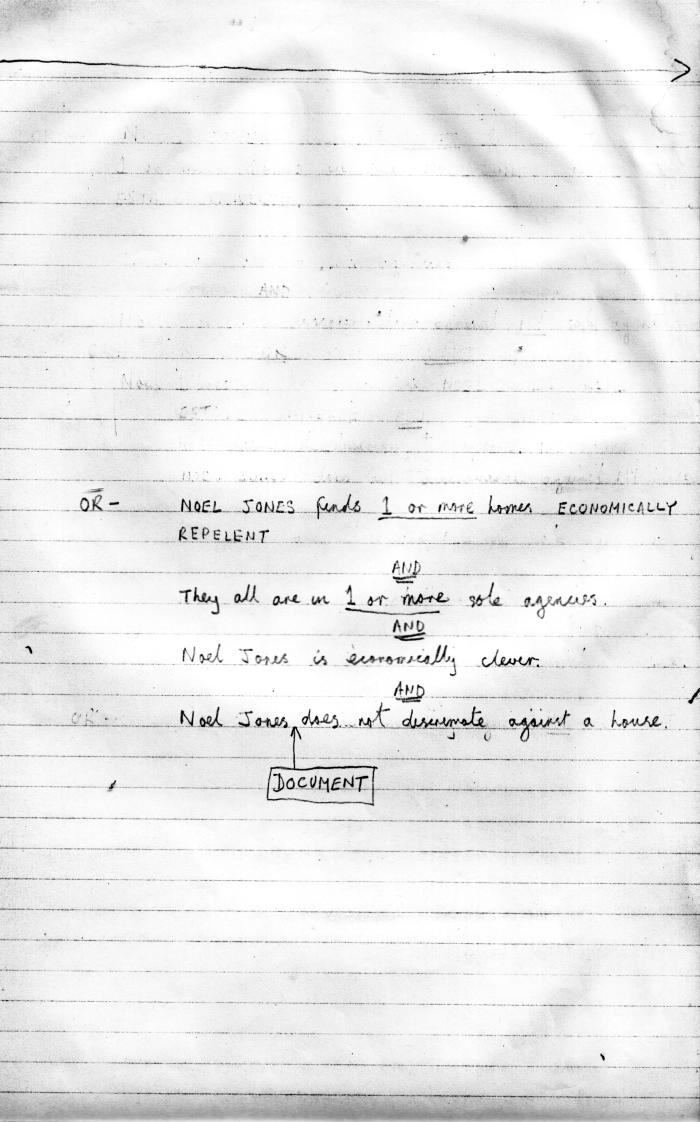 OR - NOEL JONES finds 1 or more homes ECONOMICALLY
REPELENT
AND
They all are in 1 or more sole agencies.
AND
Noel Jones is economically clever.
AND
Noel Jones does not discrimate against a house.
DOCUMENT